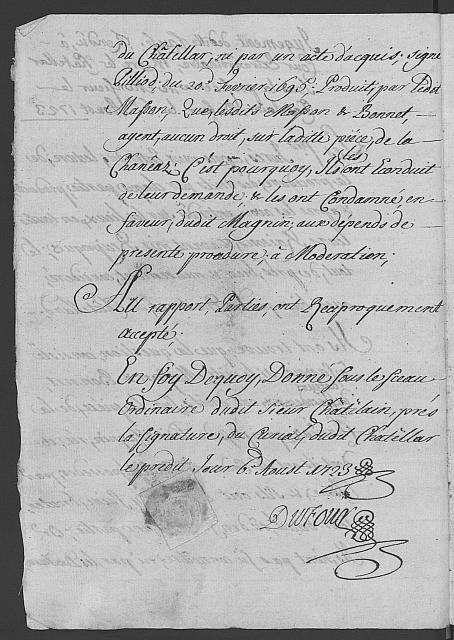 du Chatellar, ni par un acte d'acquis, signé
Gilliod, du 20e fevrier 1695. Produit, par ledit
Masson, Que lesdits Masson & Bonnet,
ayent, aucun droit, sur ladite piéce, de la
Chaneaz; C'est pourquoy, Ils les ont Econduit
de leur demande, & les ont Condamné, en
faveur, dudit Magnin, aux dépends de
presente procedure, à Moderation;
Au rapport, Parties, ont Reciproquement
accepté.
En foy Dequoy, Donné sous le sceau
ordinaire dudit sieur Chatelain, prés
la signature, du Curial, dudit Chatellar
le predit Jour 6e Aoust 1723
Dufour